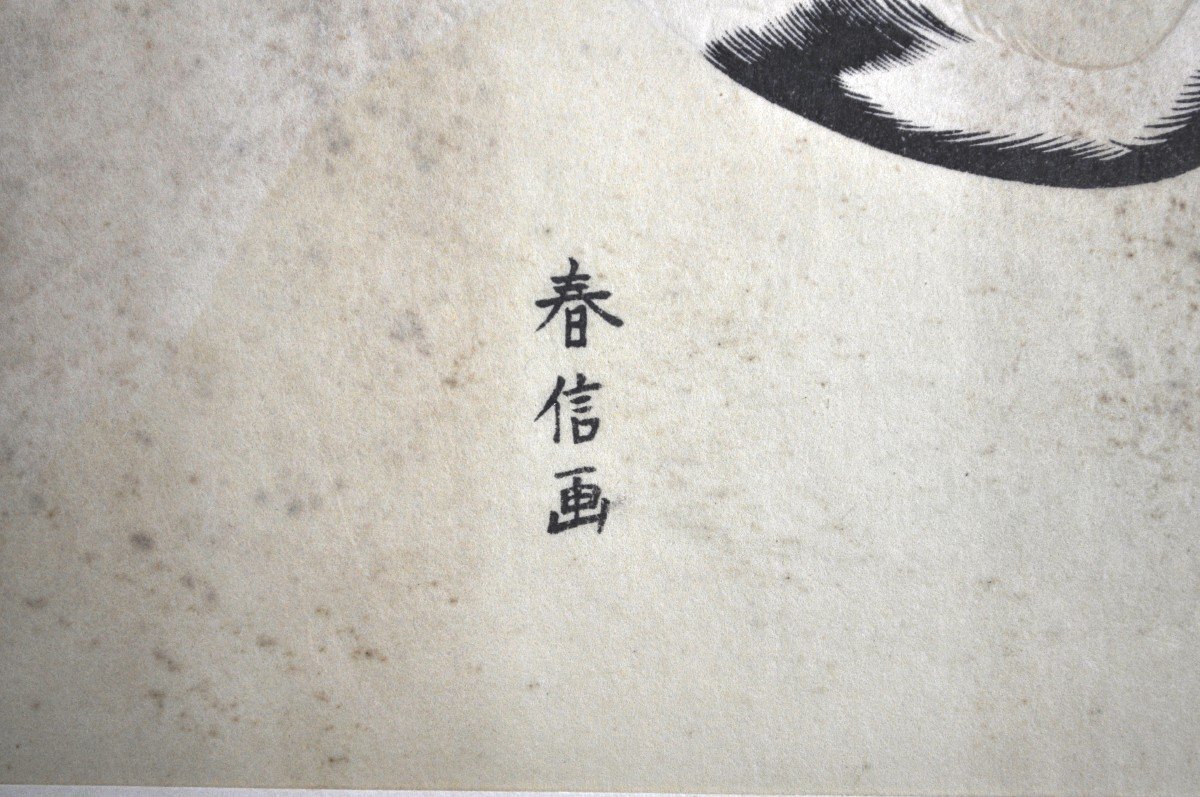 春信画